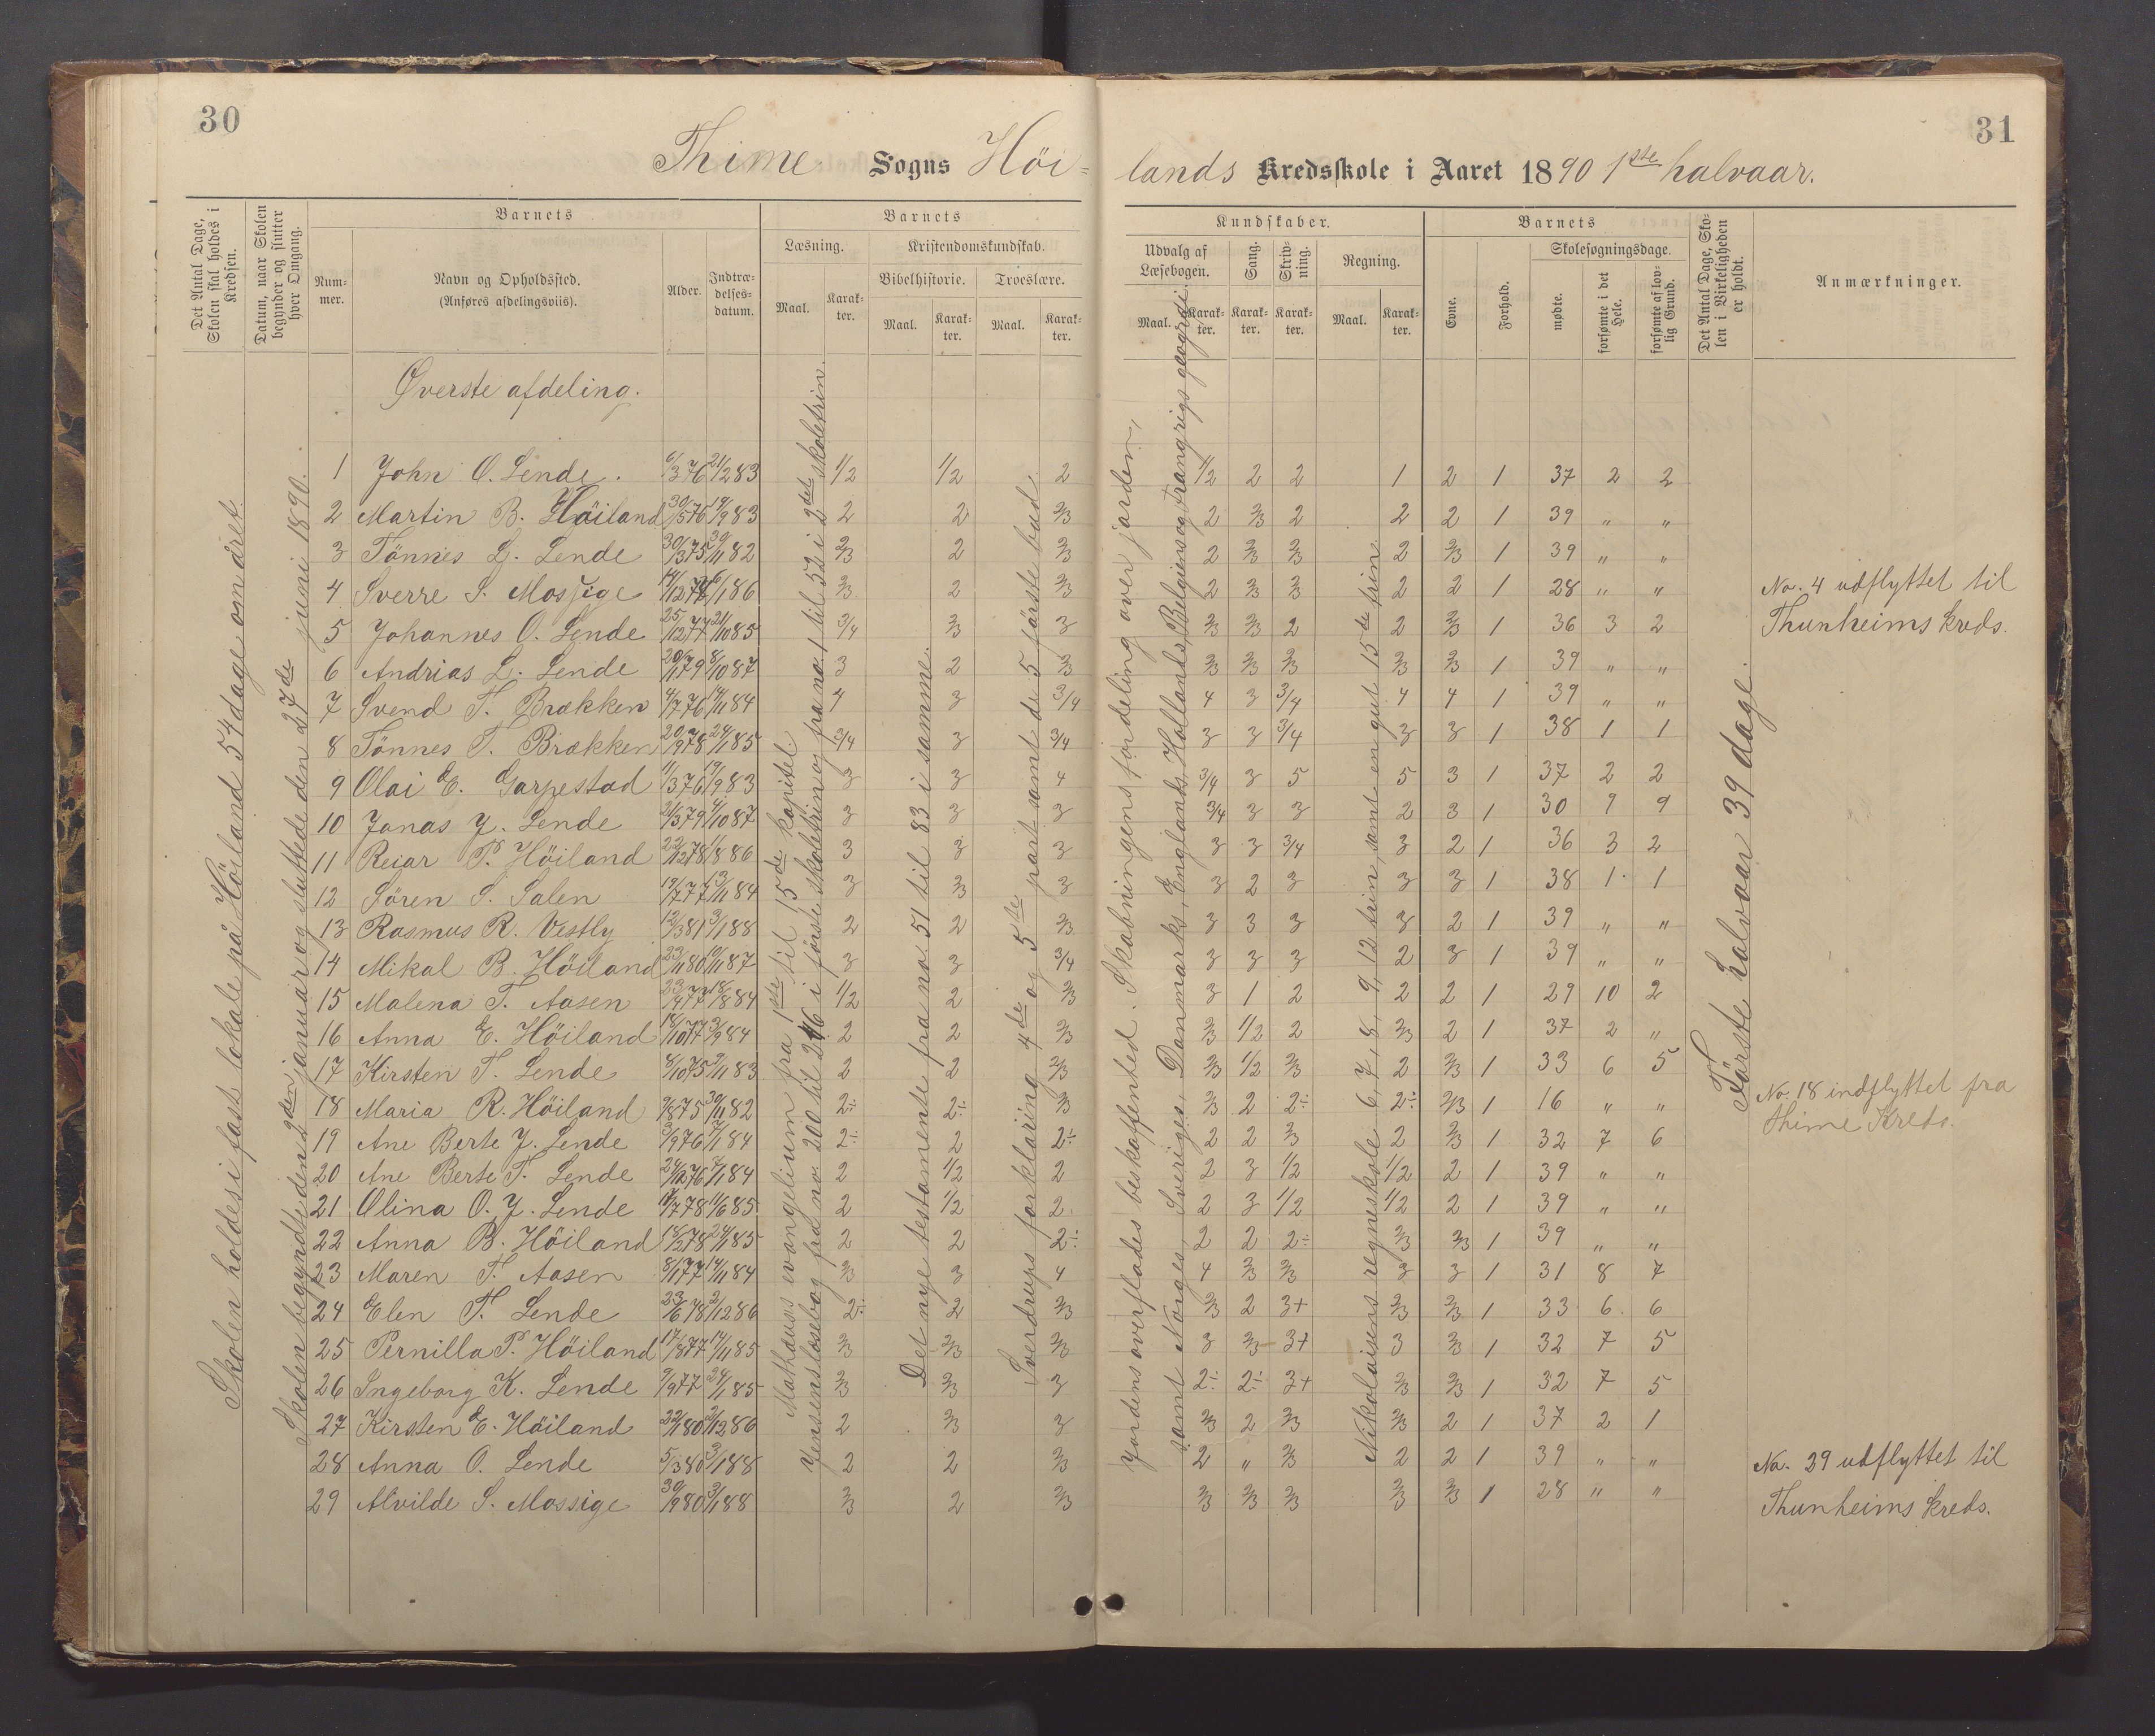 30
Thime Sogns Höi=
Det Antal Dage, Skolen skal holdes i Kredsen.
Datum, naar Skolen begynder og slutter hver Omgang.
Barnets
Num-mer.
Navn og Opholdssted.
(Anføres afdelingsviis).
Alder.
Indtræ-delses-datum.
Barnets
Læsning.
Kristendomskundskab.
Bibelhistorie.
Troeslære.
Maal.
Karak-ter.
Maal.
Karak-ter.
Maal.
Karak-ter.
Skolen holdes i fast lokale på Höiland 54 dage om året.
Skolen begyndte den 2den januar og sluttede den 27de juni 1890.
Mathæus evangelium fra 1ste til 15de kapitel
Jensens læsebog fra no 200 til 216 i første skoletrin og fra no 1 til 52 i 2det skoletrin.
Det nye testamente fra no. 51 til 83 i samme.
Sverdrups forklaring 4de og 5te part samt de 5 første bud
Øverste afdeling.
1 John O. Lende. 6/3 76 21/2 83 1/2 1/2 2
2 Martin B. Höiland 30/5 76 19/9 83 2 2 2/3
3 Tönnes L. Lende 30/3 75 30/11 82 2/3 2 2/3
4 Sverre S. Mossige 2/3 2 2/3
5 Johannes O. Lende 25/12 77 21/10 85 3/4 2/3 3
6 Andrias L. Lende 20/1 79 8/10 87 3 2 2/3
7 Svend T. Brækken 4/7 76 14/11 84 4 3 3/4
8 Tönnes T. Brækken 20/9 78 24/1 85 3/4 3 3/4
9 Olai E. Garpestad 11/3 76 19/9 83 3 3 4
10 Jonas J. Lende 21/3 79 4/10 87 3 3 3
11 Reiar P. Höiland 22/12 78 11/8 86 3 3 3
12 Sören S. Salen 19/7 77 13/11 84 3 2/3 3
13 Rasmus R. Vestly 12/3 81 3/1 88 2 2 2/3
14 Mikal B. Höiland 23/11 80 10/11 87 3 3 3/4
15 Malena T. Aasen 23/4 77 18/8 84 1/2 2 2/3
16 Anna E. Höiland 18/10 77 3/9 84 2 2 2/3
17 Kirsten T. Lende 8/10 75 2/11 83 2 2 2/3
18 Maria R. Höiland 9/8 75 30/11 82 2÷ 2÷ 2/3
19 Ane Berte J. Lende 3/9 76 7/1 84 2÷ 2 2÷
20 Ane Berte T. Lende 24/12 76 7/1 84 2 1/2 2
21 Olina O. J. Lende 19/7 78 11/6 85 2 1/2 2
22 Anna B. Höiland 18/2 78 24/1 85 2 2 2÷
23 Maren T. Aasen 8/1 77 14/11 84 2/3 3 4
24 Elen T. Lende 23/6 78 2/12 86 2÷ 2 2/3
25 Pernilla P. Höiland 17/8 77 14/11 85 2/3 2/3 2/3
26 Ingeborg K. Lende 9/9 77 24/1 85 2/3 2/3 3
27 Kirsten E. Höiland 22/1 80 2/12 86 2 2/3 3
28 Anna O. Lende 5/3 80 3/1 88 2 2 2/3
29 Alvilde S. Mossige 30/9 80 3/1 88 2/3 2 2/3
31
lands Kredsskole i Aaret 1890 1ste halvaar.
Kundskaber.
Udvalg af Læsebogen.
Sang.
Skriv-ning.
Regning.
Maal.
Karak-ter.
Karak-ter.
Karak-ter.
Maal.
Karak-ter.
Barnets
Evne.
Forhold.
Skolesøgningsdage.
mødte.
forsømte i det Hele.
forsømte af lov-lig Grund.
Det Antal Dage, Sko-len i Virkeligheden er holdt.
Anmærkninger.
Jordens overflades beskaffenhed. Skabningens fordeling over jorden,
samt Norges, Sveriges, Danmarks, Englands, Hollands, Belgiens og Frangrigs geografi.
Nikolaisens regneskole 6, 7, 8, 9, 12 trin, samt en gut 15de trin.
Første halvaar 39 dage.
1/2 2 2 1 2 1 37 2 2
2 2/3 2 2 2 1 39 " "
2 2/3 2/3 2 2/3 1 39 " "
2 2/3 2/3 2 2 1 28 " " No. 4 udflyttet til
2/3 2/3 2 2 2/3 1 36 3 2 Thunheims kreds.
2/3 2/3 2/3 2/3 2/3 1 39 " "
4 3 3/4 4 4 1 39 " "
3 3 3/4 3 3 1 38 1 1
3/4 3 5 5 3 1 37 2 2
3/4 3 3 2 3 1 30 9 9
3 3 3/4 3 2 1 36 3 2
3 2 3 3 3 1 38 1 1
3 3 3 3 2 1 39 " "
3 3 3 2 3 1 39 " "
3 1 2 2 2 1 29 10 2
2/3 1/2 2 2/3 2 1 37 2 "
2/3 1/2 2/3 2 2/3 1 33 6 5
2/3 2 2÷ 2÷ 2/3 1 16 " " No. 18 indflyttet fra
2 2 2/3 2 2/3 1 32 7 6 thime Kreds.
2 3 1/2 1/2 2 1 39 " "
2 3 1/2 1/2 2 1 39 " "
2 2 2÷ 2/3 2/3 1 39 " "
4 2/3 2/3 3 3 1 31 8 7
2/3 2 3+ 2/3 2/3 1 33 6 6
3 2/3 3+ 3 2/3 1 32 7 5
2÷ 2÷ 3+ 2/3 2/3 1 32 7 5
2/3 2 2/3 2/3 2 1 37 2 1
2 " 2/3 2 2 1 39 " " No. 29 udflyttet til
2/3 2/3 2/3 2/3 2/3 1 28 " " Thunheims kreds.